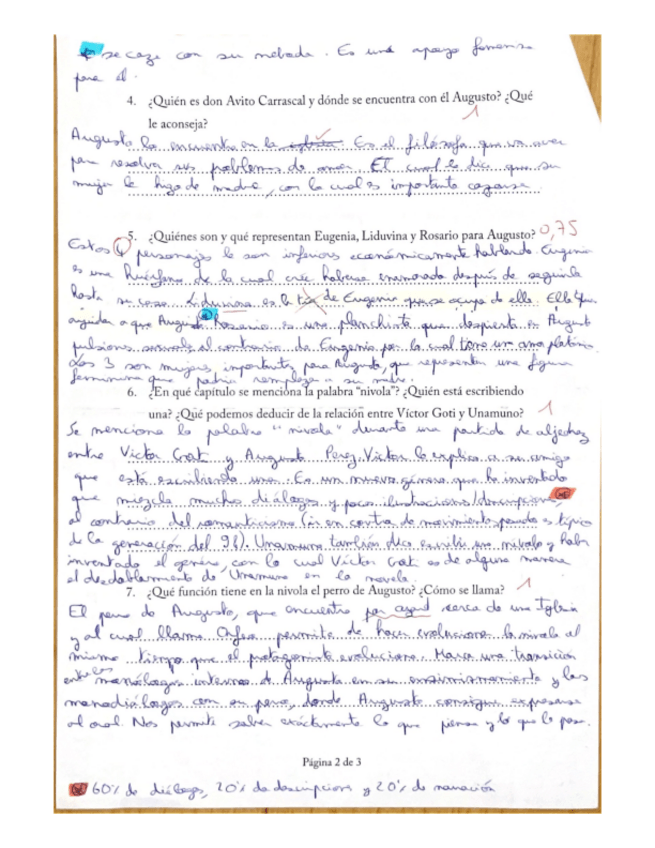 se case con su mebada. Es una apoyo femenino
para él.
4. ¿Quién es don Avito Carrascal y dónde se encuentra con él Augusto? ¿Qué
le aconseja?
1
Augusto lo encuentra en la Es el filósofo que va a ver
para resolver sus problemas de amor. El cual le dice que su
mujer le hizo de madre, con lo cual es importante casarse.
5. ¿Quiénes son y qué representan Eugenia, Liduvina y Rosario para Augusto? 0,75
Estos 4 personajes le son inferiores económicamente hablando. Eugenia
es una huérfana de la cual cree haberse enamorado después de seguirla
hasta su casa. Liduvina es la tía de Eugenia que se ocupa de ella. Ella
ayudar a que Augusto Rosario es una planchista que despierta en Augusto
pulsiones sexuales al contrario de Eugenia por la cual tiene un amor platónico.
Los 3 son mujeres importantes para Augusto, que representan una figura
femenina que podría remplazar a su madre.
6. ¿En qué capítulo se menciona la palabra “nivola”? ¿Quién está escribiendo
una? ¿Qué podemos deducir de la relación entre Víctor Goti y Unamuno?
1
Se menciona la palabra "nivola" durante una partida de aljedrez
entre Victor Goti y Augusto Perez. Victor le explica a su amigo
que está escribiendo una. Es un nuevo género que ha inventado
que mezcla muchos diálogos y pocas ilustraciones/descripciones,
al contrario del romanticismo (ir en contra de movimiento pasado es típico
de la generación del 98). Unamuno también dice escribir un nivola y haber
inventado el género, con lo cual Víctor Goti es de alguna manera
el desdoblamiento de Unamuno en la novela.
7. ¿Qué función tiene en la nivola el perro de Augusto? ¿Cómo se llama?
1
El perro de Augusto, que encuentra por azard cerca de una Iglesia
y al cual llama Orfeo permite de hacer evolucionar la nivola al
mismo tiempo que el protagonista evoluciona. Marca una transición
entre los monólogos internos de Augusto en su ensimismamiento y los
monodiálogos con su perro, donde Augusto consigue expresarse
al oral. Nos permite saber exáctamente lo que piensa y lo que le pasa.
Página 2 de 3
60% de diálogo, 20% de descripcions y 20% de narración